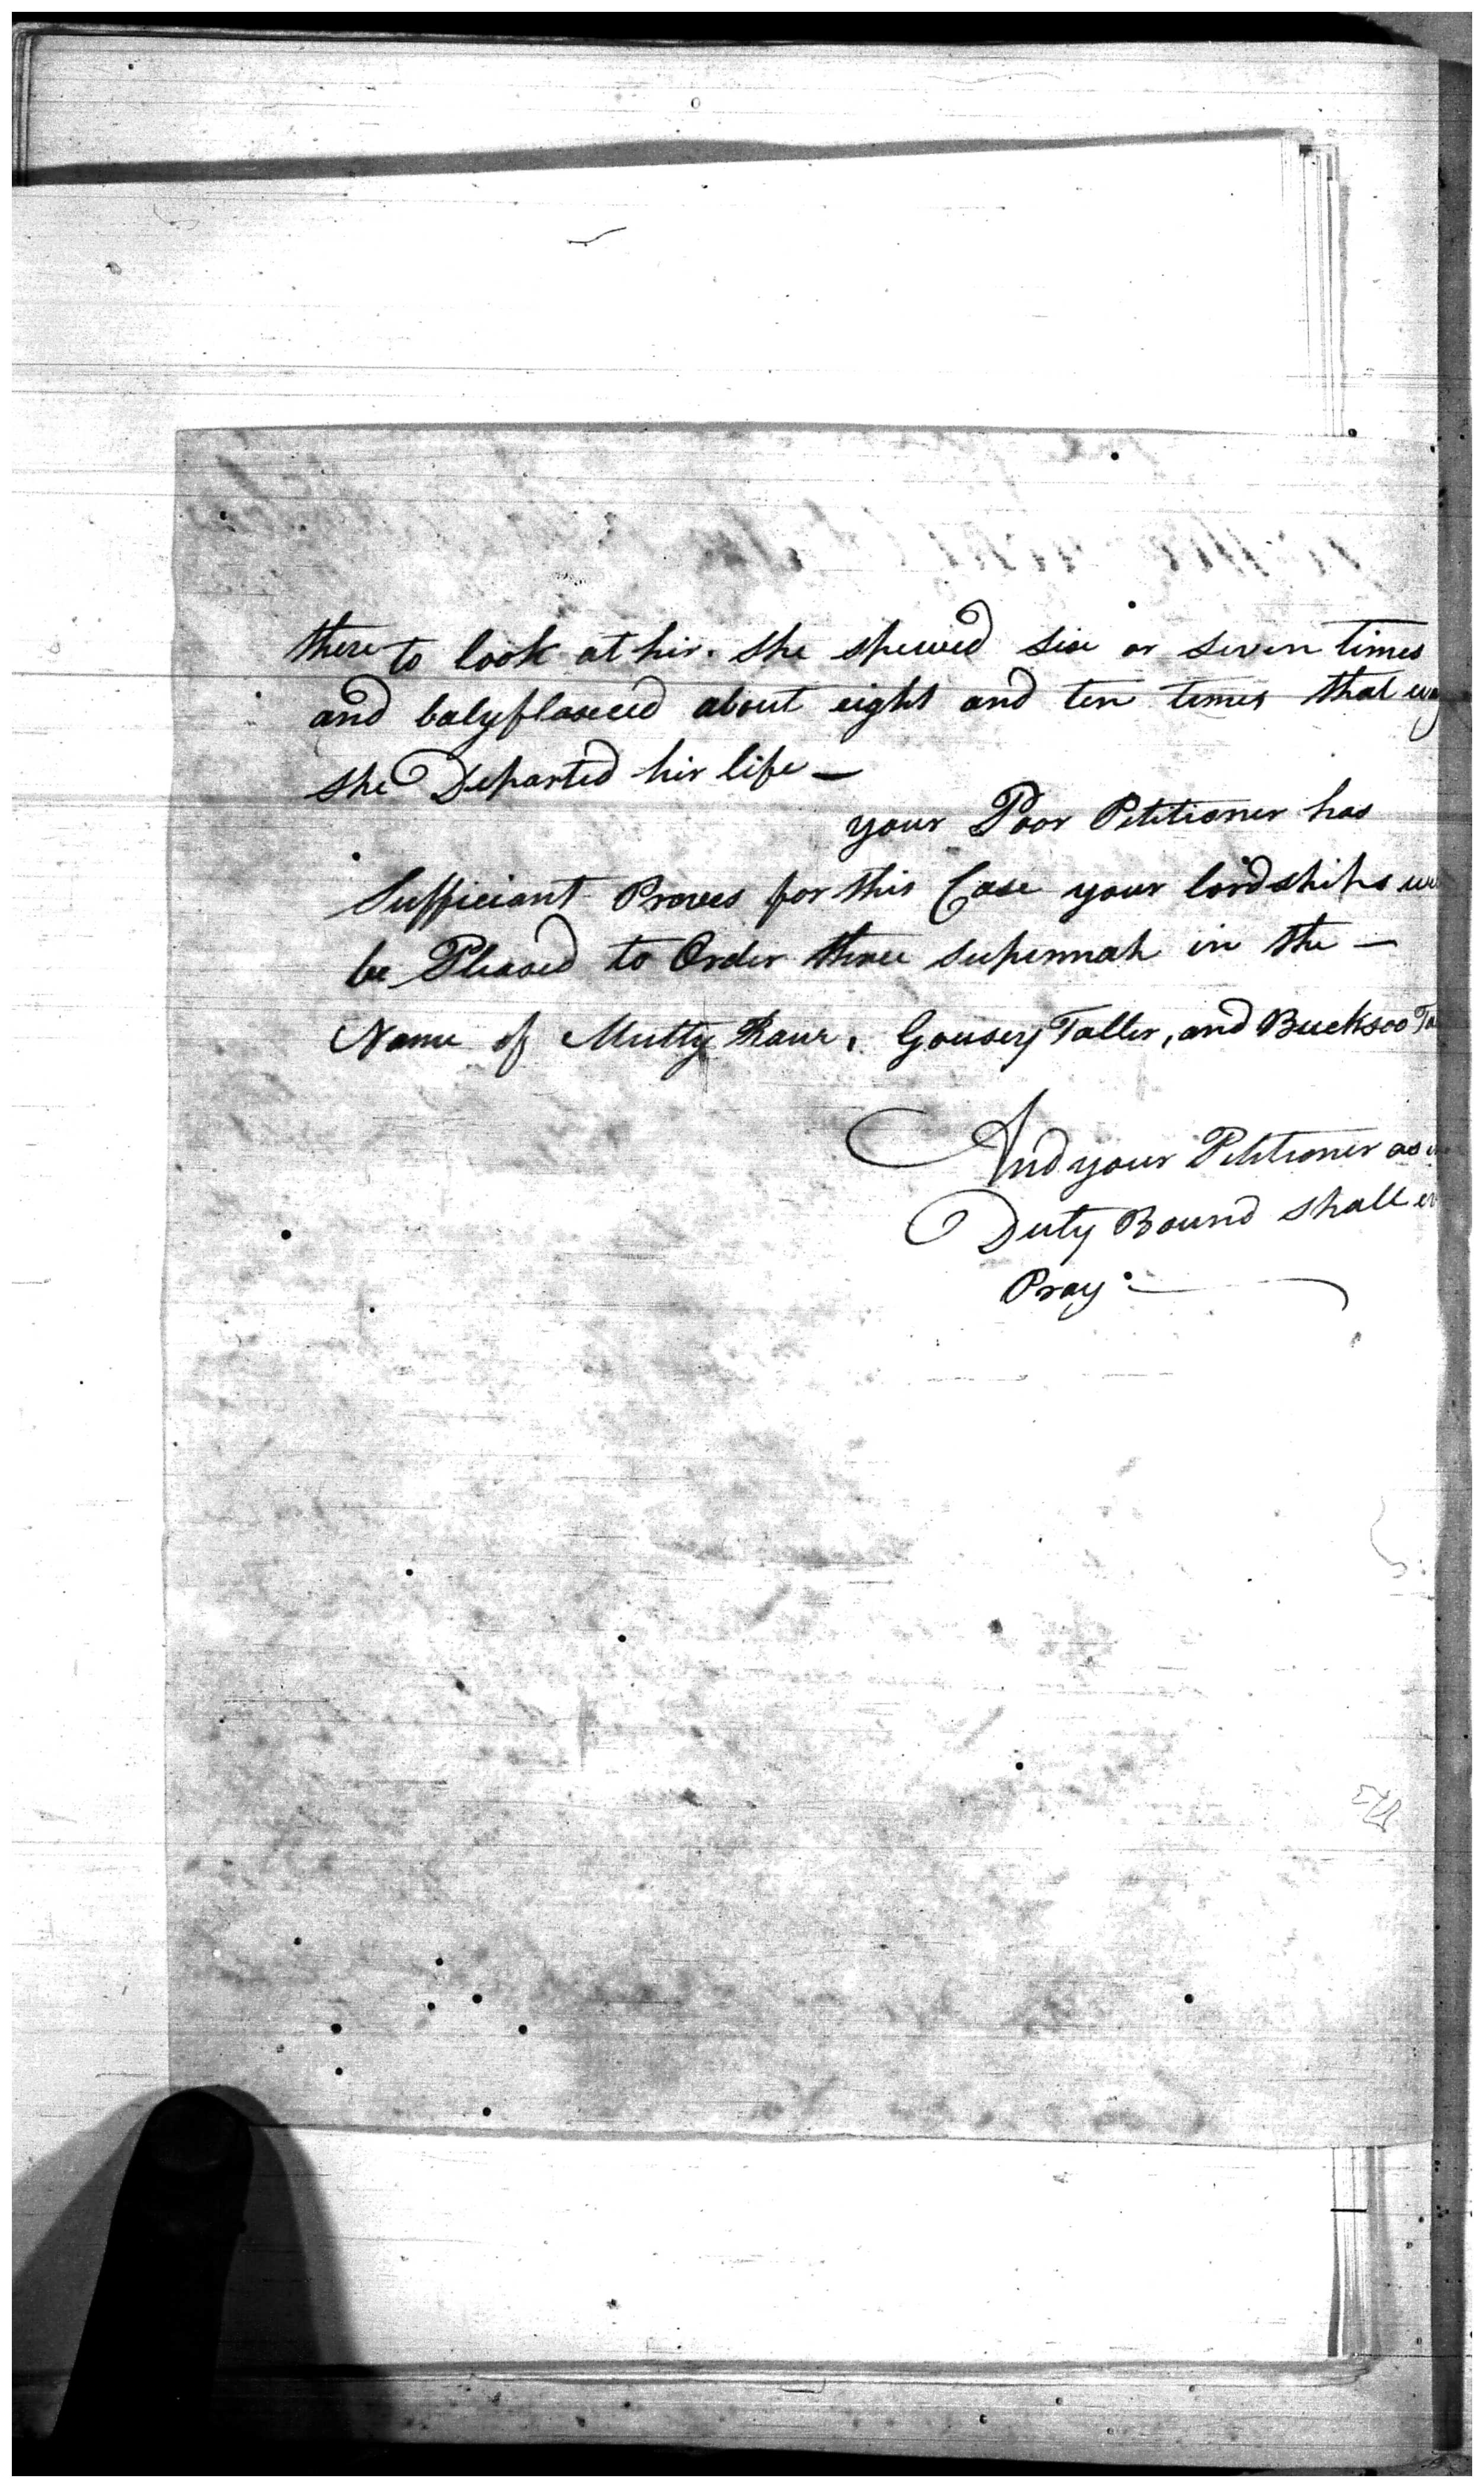 there to look at hir. she spewed six or seven times
and balyflaxeed about eight and ten times that
she Departed hir life —
your Poor Petitioner has
Sufficiant Proves for this Case your lordships
be Pleased to Order three supennah in the —
Name of Mutty Raur, Gousey Taller, and Bucksoo
And your Petitioner as
Duty Bound shall
Pray